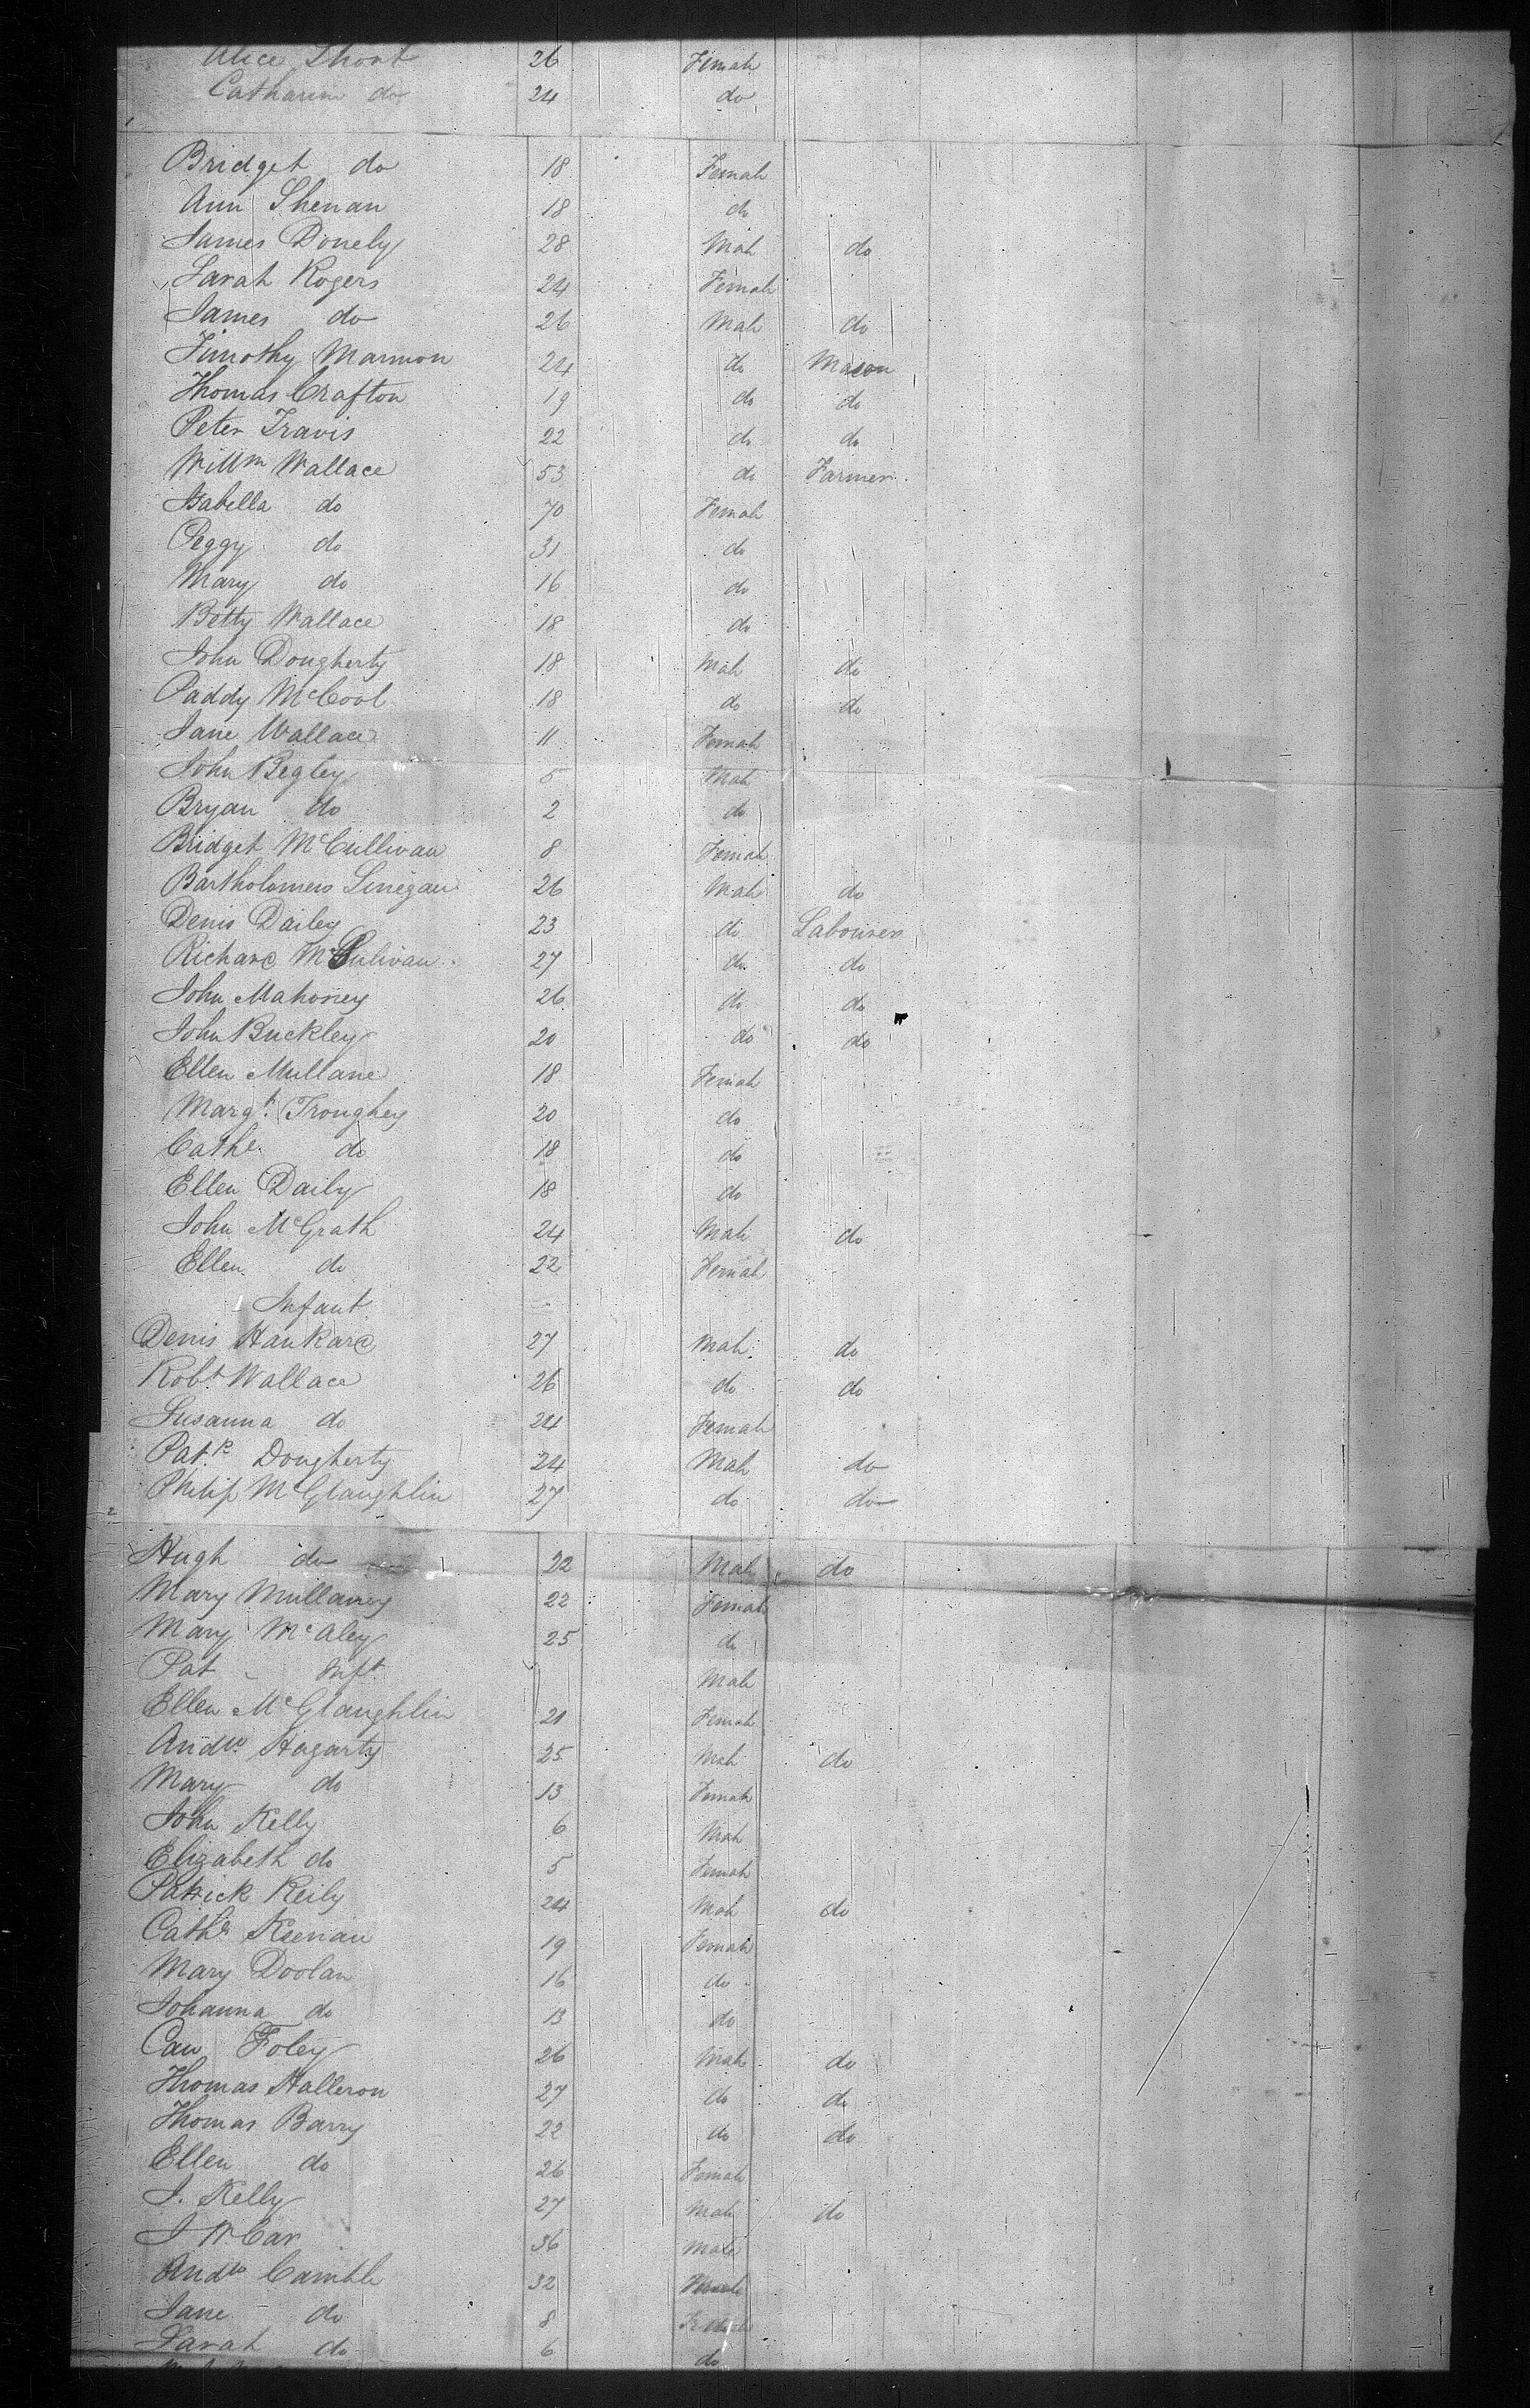 Alice Short 26 Female
Catharine do 24 do
Bridget do 18 Female
Ann Shenan 18 do
James Donely 28 Male do
Sarah Rogers 24 Female
James do 26 Male do
Timothy Marmon 24 do Mason
Thomas Crafton 19 do do
Peter Travis 22 do do
Willm Wallace 53 do Farmer
Isabella do 70 Female
Peggy do 31 do
Mary do 16 do
Betty Wallace 18 do
John Dougherty 18 Male do
Paddy McCool 18 do do
Jane Wallace 11 Female
John Begley 5 Male
Bryan do 2 do
Bridget McCullivan 8 Female
Bartholomew Linegan 26 Male do
Denis Dailey 23 do Labourer
Richard 27 do do
John Mahoney 26 do do
John Buckley 20 do do
Ellen Mullane 18 Female
Margt. Troughey 20 do
Cathe. do 18 do
Ellen Daily 18 do
John McGrath 24 Male do
Ellen do 22 Female
Infant
Denis Hankard 27 Male do
Robt Wallace 26 do do
Susanna do 24 Female
Patk Dougherty 24 Male do
Philip McGlaughlin 27 do do
Hugh do 22 Male do
Mary Mullaney 22 Female
Mary McAley 25 do
Pat - Inft Male
Ellen McGlaughlin 21 Female
Andw. Hagarty 25 Male do
Mary do 13 Female
John Kelly 6 Male
Elizabeth do 5 Female
Patrick Reily 24 Male do
Cathe Keenan 19 Female
Mary Doolan 16 do
Johanna do 13 do
Foley 26 Male do
Thomas Halleron 27 do do
Thomas Barry 22 do do
Ellen do 26 Female
J. Kelly 27 Male do
J 36 Male
Andw 32
Jane do 8 Female
Sarah do 6 do